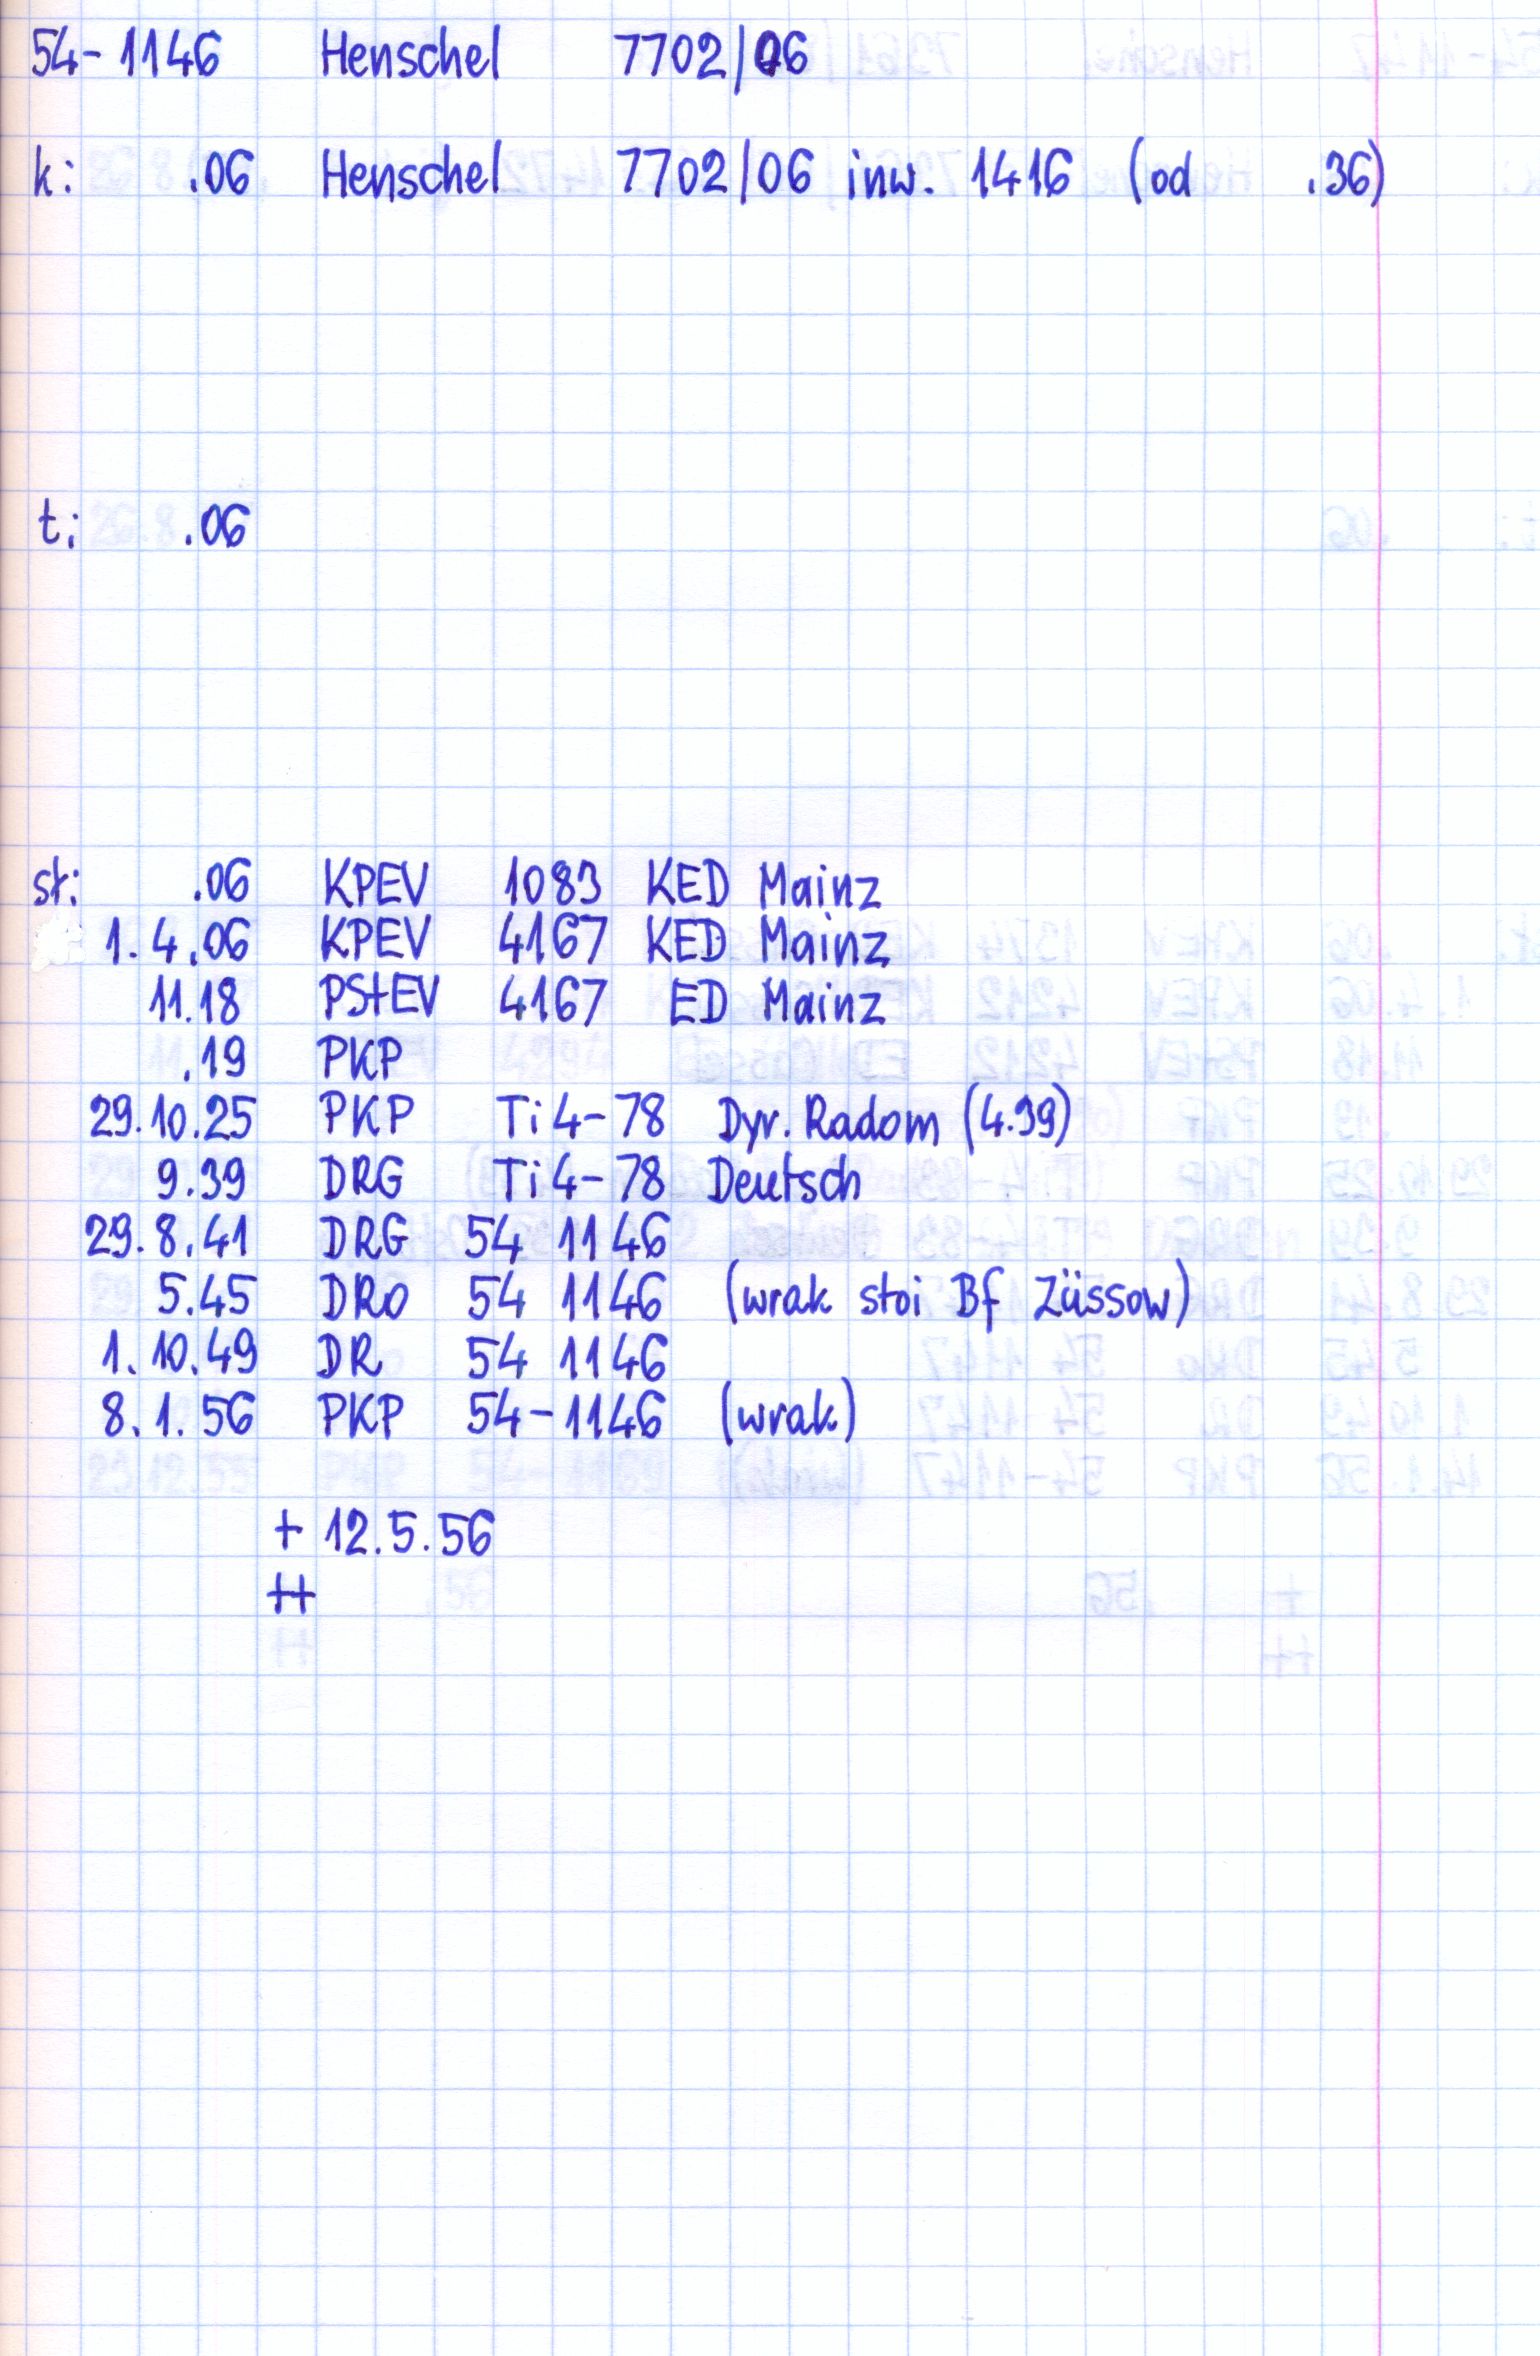 54-1146 Henschel 7702/06
k: .06 Henschel 7702/06 inw. 1416 (od .36)
t: .06
st: .06 KPEV 1083 KED Mainz
1.4.06 KPEV 4167 KED Mainz
11.18 PStEV 4167 ED Mainz
.19 PKP
29.10.25 PKP Ti4-78 Dyr. Radom (4.39)
9.39 DRG Ti4-78 Deutsch
29.8.41 DRG 54 1146
5.45 DRo 54 1146 (wrak stoi Bf Züssow)
1.10.49 DR 54 1146
8.1.56 PKP 54-1146 (wrak)
+ 12.5.56
++